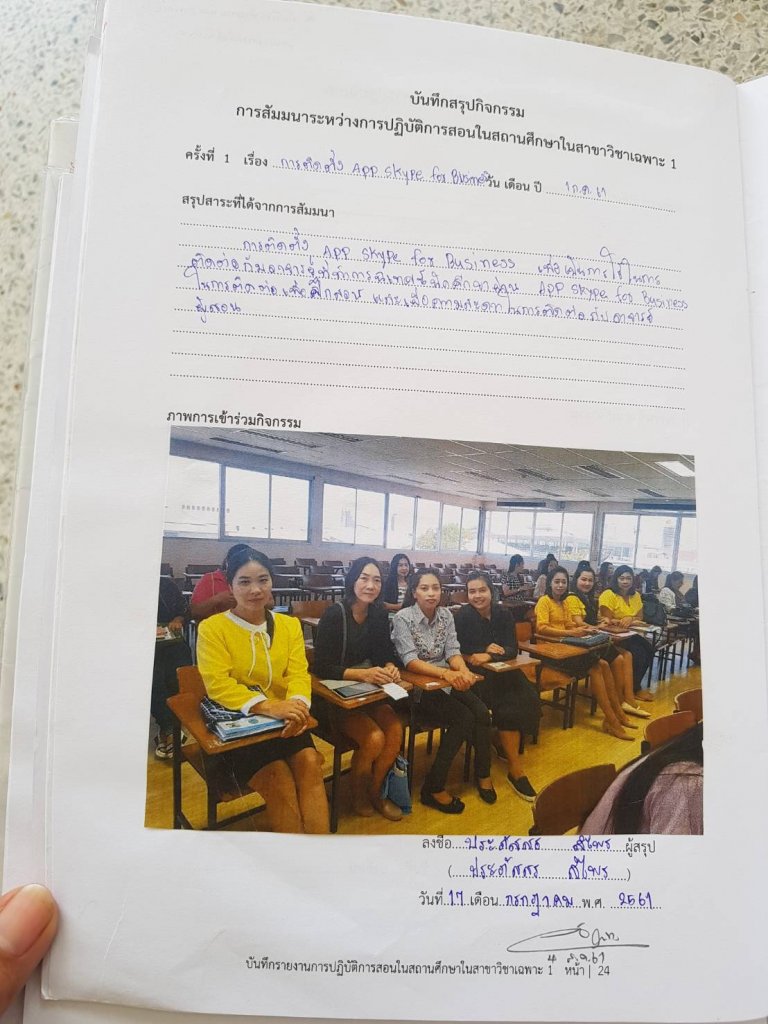 บันทึกสรุปกิจกรรม
การสัมมนาระหว่างการปฏิบัติการสอนในสถานศึกษาในสาขาวิชาเฉพาะ 1
ครั้งที่ 1 เรื่อง การติดตั้ง APP Skype for Business วัน เดือน ปี 1 ก.ค. 61
สรุปสาระที่ได้จากการสัมมนา
การติดตั้ง APP Skype for Business เพื่อเป็นการใช้ในการ
ติดต่อกับอาจารย์ผู้ที่ทำการนิเทศน์นักศึกษา APP Skype for Business
ในการติดต่อ และเพื่อความสะดวกในการติดต่อ อาจารย์
ผู้สอน
ภาพการเข้าร่วมกิจกรรม
ลงชื่อ ประภัสสร ผู้สรุป
( ประภัสสร )
วันที่ 17 เดือน กรกฎาคม พ.ศ. 2561
61
บันทึกรายงานการปฏิบัติการสอนในสถานศึกษาในสาขาวิชาเฉพาะ 1 หน้า | 24